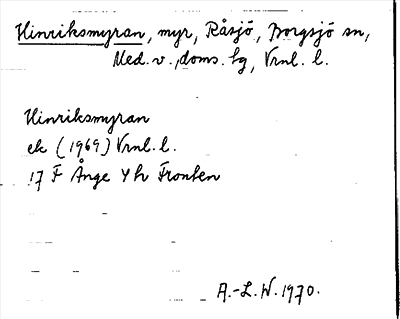 Hinriksmyran, myr, Råsjö, Borgsjö sn,
Med. v. doms. hg, Vrnl. l.
Hinriksmyran
ek (1969) Vrnl. l.
17 F Ånge 4 h Fronten
A.-L. W. 1970.